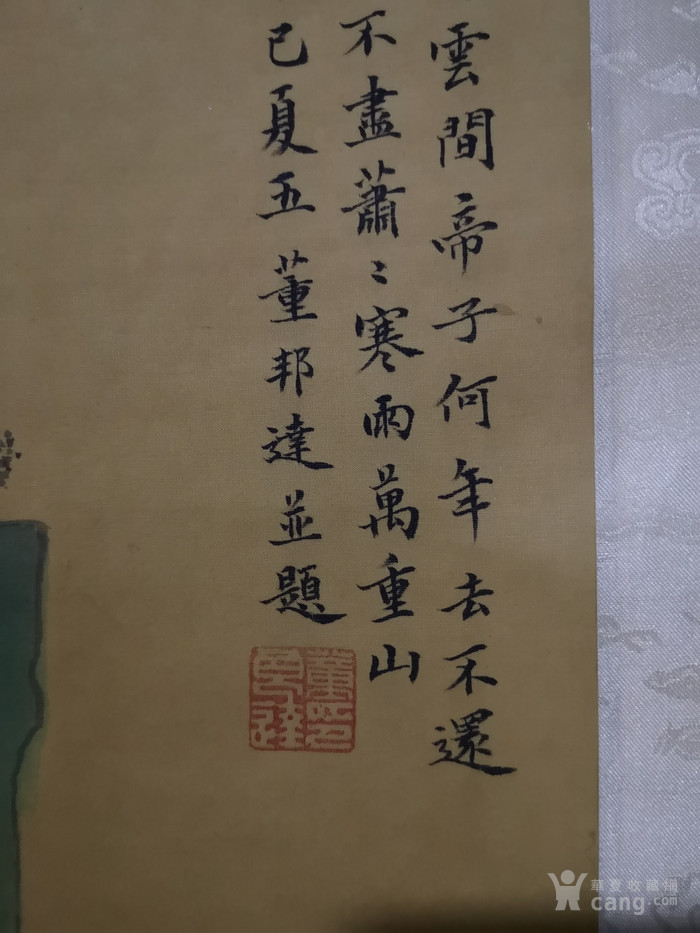 雲間帝子何年去不還
不盡蕭〻寒雨萬重山
已夏五董邦達並題
華夏收藏網
cang.com